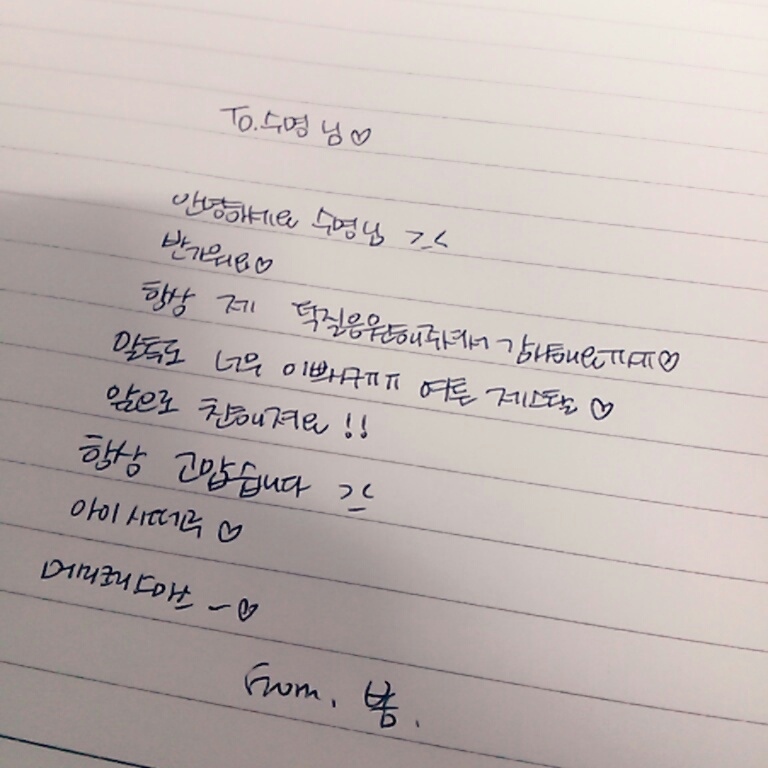 To. 수영 님♡
안녕하세요 수영님 >_<
반가워요♡
항상 제 덕질응원해주셔서 감사해요ㅠㅠㅠ♡
말투도 너무 이쁘시구ㅠㅠ 여튼 제스탈♡
앞으로 친해져요!!
항상 고맙습니다 >_<
아이시떼루♡
메리크리스마스 ~♡
From. 봄.